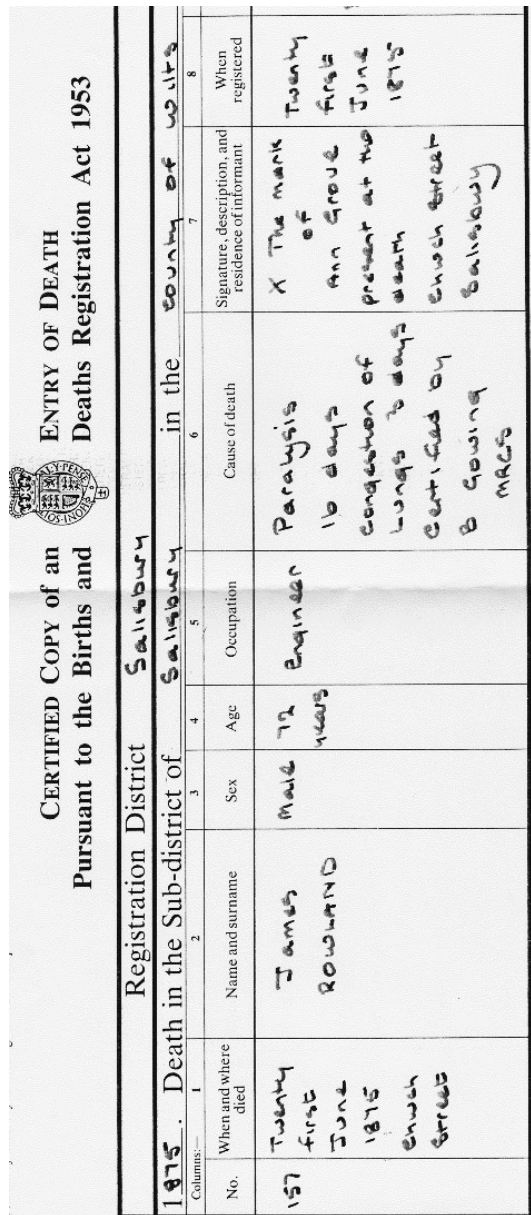 CERTIFIED COPY of an ENTRY OF DEATH
Pursuant to the Births and Deaths Registration Act 1953
Registration District Salisbury
1875. Death in the Sub-district of Salisbury in the County of Wilts
Columns:— 1 2 3 4 5 6 7 8
No.
When and where
died
Name and surname
Sex
Age
Occupation
Cause of death
Signature, description, and
residence of informant
When
registered
157
Twenty
first
June
1875
Church
Street
James
ROWLAND
Male
72
years
Engineer
Paralysis
16 days
Congestion of
Lungs 3 days
Certified by
B Gowing
MRCS
X The mark
of
Ann Grove
present at the
death
Church Street
Salisbury
Twenty
first
June
1875